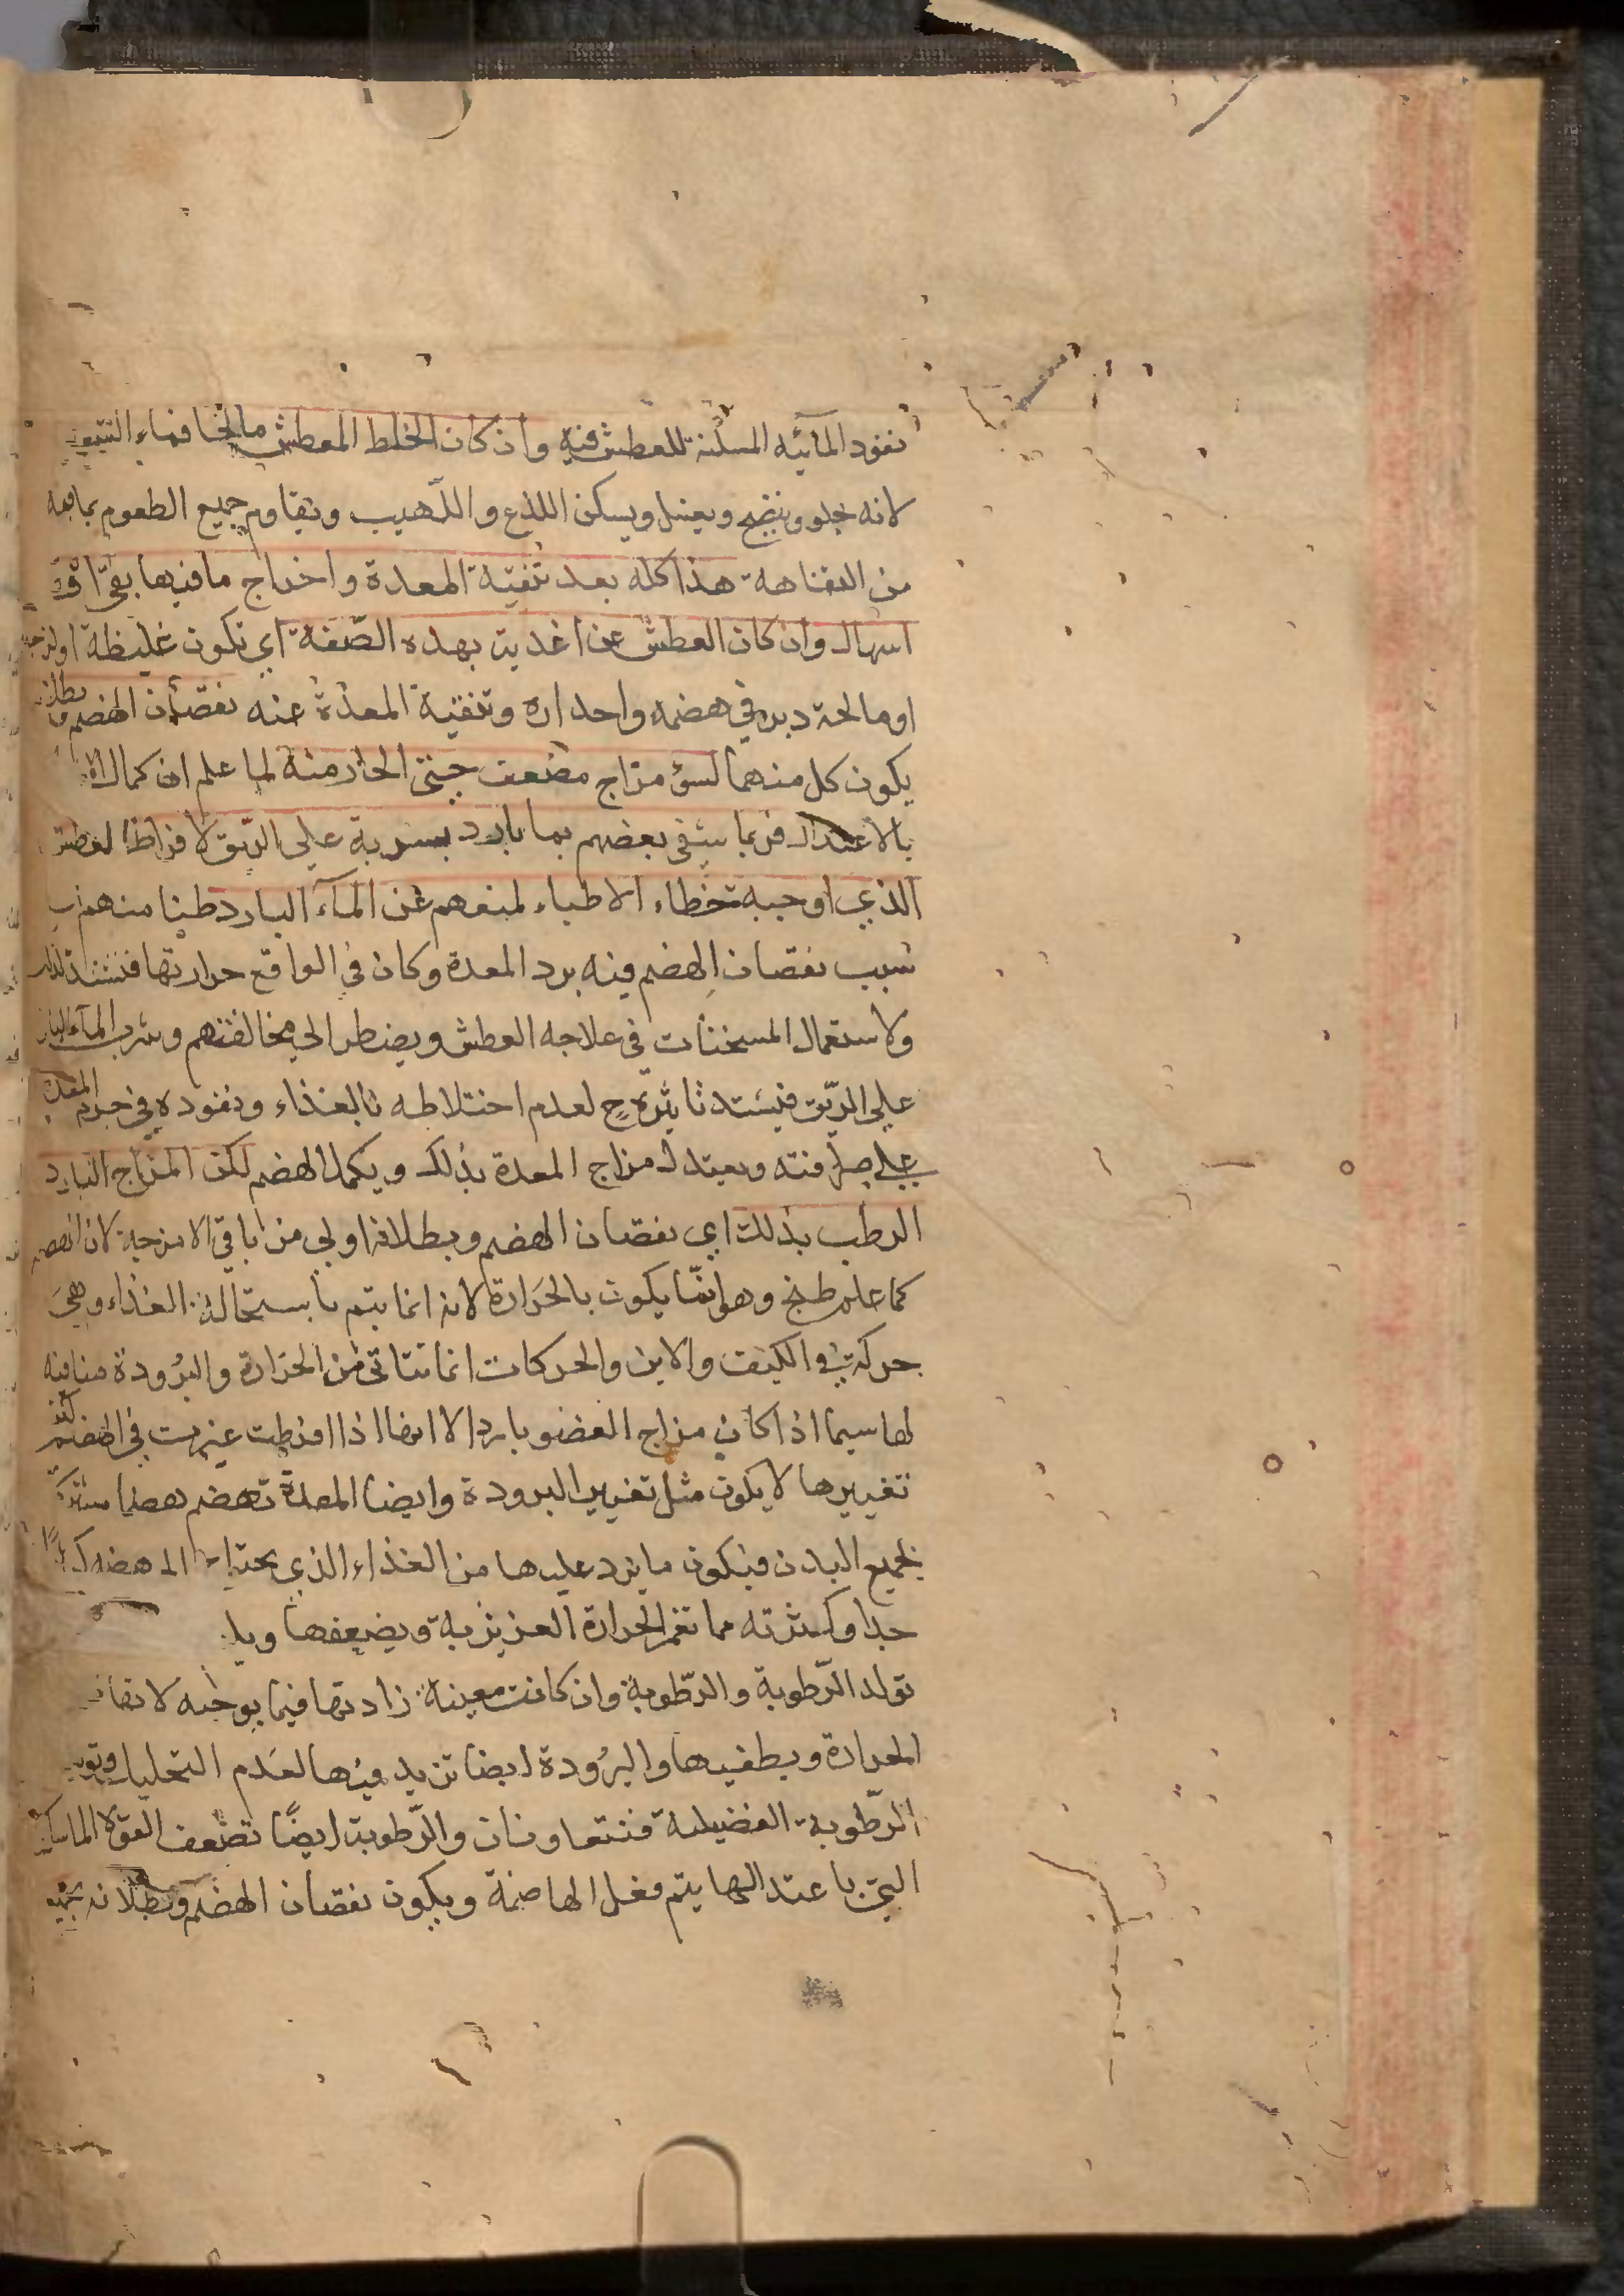 نفود المائيه المسكنة للعطش فيه وان كان الخلط المعطش مالحا فماء الشعير
لانه يجلو وينضج ويغسل ويسكن اللذع واللهيب ويقاوم جميع الطعوم بما فيه
من التفاهة هذا كله بعد تنقية المعدة واخراج ما فيها بقئ او
اسهال وان كان العطش عن اغذية بهذه الصفة اي تكون غليظة او لزجة
او مالحة دبر في هضمه واحداره وتنقية المعدة عنه نقصان الهضم وبطلانه
يكون كل منهما لسؤ مزاج مضعف حتى الحار منه لما علم ان كمال
بالاعتدال فربما يشفى بعضهم بماء بارد يشربه على الريق لافراط العطش
الذي اوجبه تخطاء الاطباء لمنعهم عن المآء البارد ظنا منهم ان
سبب نقصان الهضم فيه برد المعدة وكان في الواقع حرارتها فيشتد لذلك
ولاستعمال المسخنات في علاجه العطش ويضطر الى مخالفتهم وشرب المآء البارد
على الريق فيشتد تاثيره ح لعدم اختلاطه بالغذاء ونفوده في جرم المعدة
على صرافته ويعتدل مزاج المعدة بذلك ويكمل الهضم لكن المزاج البارد
الرطب بذلك اي نقصان الهضم وبطلانه اولى من باقي الامزجة لان الهضم
كما علم طبخ وهو انما يكون بالحرارة لانه انما يتم باستحالة الغذاء وهي
حركة في الكيف والاين والحركات انما تتاتى من الحرارة والبرودة منافيه
لها سيما اذا كان مزاج العضو باردا الا انها اذا افرطت غيرت في الهضم لكن
تغييرها لا يكون مثل تغيير البرودة وايضا المعدة تهضم هضما مشتركا
لجميع البدن فيكون ما يرد عليها من الغذاء الذي يحتاج الى هضمه كثيرا
جدا وكثرته مما تغمر الحرارة الغريزية ويضعفها
تولد الرطوبة والرطوبة وان كانت معينة زادتها فيما يوجبه لانها
الحرارة ويطفيها والبرودة ايضا تزيد فيها لعدم التحليل
الرطوبة الفضيلة فتتعاونان والرطوبة ايضا تضعف القوة الماسكة
التي باعتدالها يتم فعل الهاضمة ويكون نقصان الهضم وبطلانه